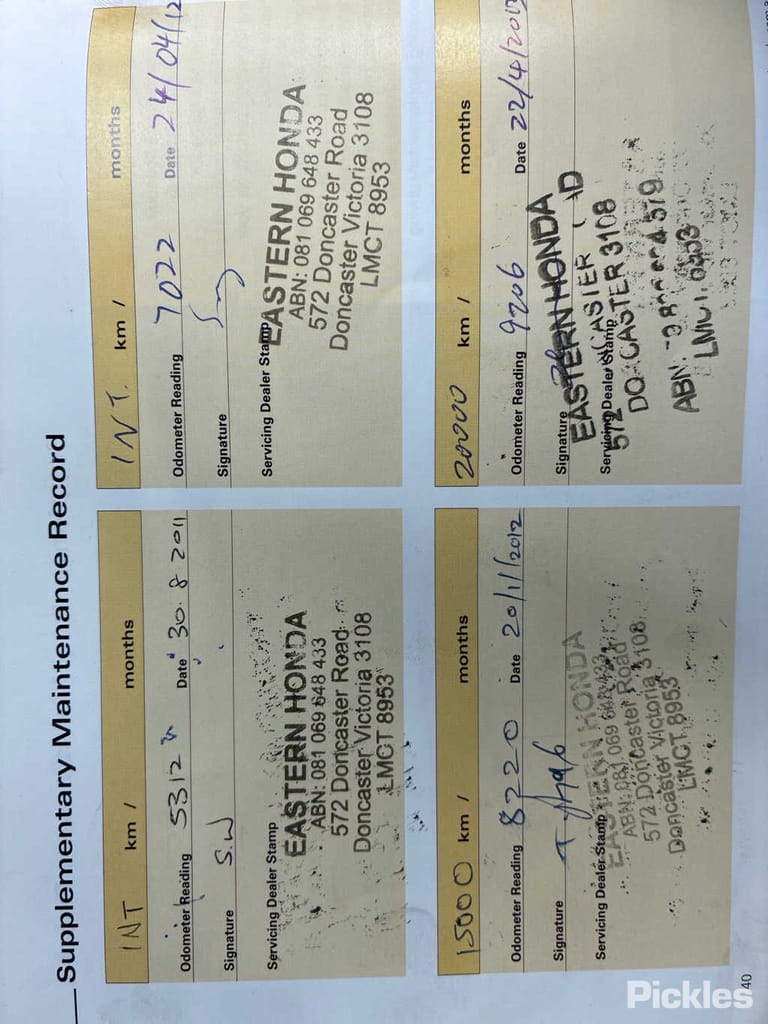 Supplementary Maintenance Record
INT km / months
Odometer Reading 5312 Date 30.8 2011
Signature S.W
Servicing Dealer Stamp
EASTERN HONDA
ABN: 081 069 648 433
572 Doncaster Road
Doncaster Victoria 3108
LMCT 8953
INT. km / months
Odometer Reading 7022 Date 24/04/12
Signature
Servicing Dealer Stamp
EASTERN HONDA
ABN: 081 069 648 433
572 Doncaster Road
Doncaster Victoria 3108
LMCT 8953
15000 km / months
Odometer Reading 8220 Date 20/11/2012
Signature
Servicing Dealer Stamp
EASTERN HONDA
ABN: 081 069 648 433
572 Doncaster Road
Doncaster Victoria 3108
LMCT 8953
20000 km / months
Odometer Reading 9206 Date 22/4/2013
Signature
EASTERN HONDA
Servicing Dealer Stamp
572
3108
ABN:
40
Pickles